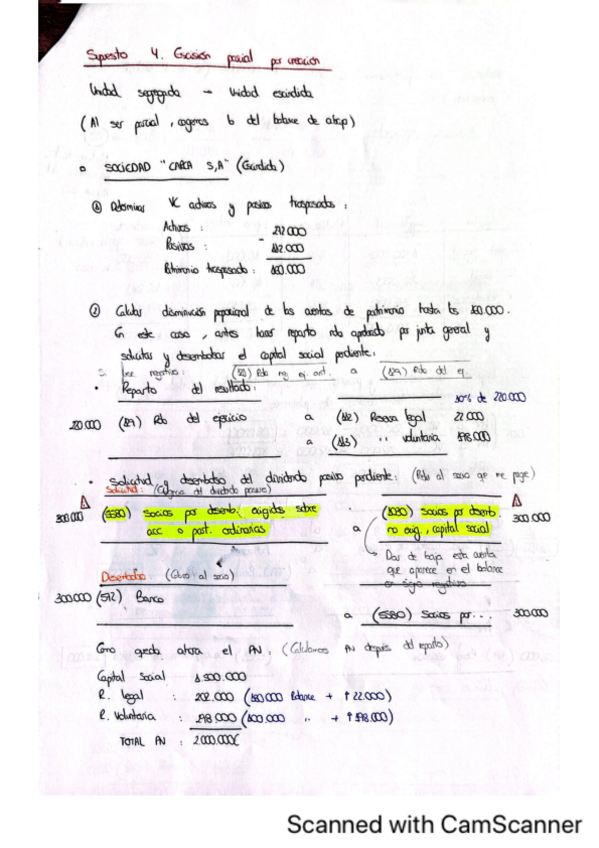 Supuesto 4. Escisión parcial por creación
Unidad segregada → Unidad escindida
(Al ser parcial, cogemos lo del balance de abajo)
SOCIEDAD "CARCA S,A" (Escindida)
① Determinar VC activos y pasivos traspasados:
Activos: 292.000
Pasivos: - 112.000
Patrimonio traspasado: 180.000
② Calcular disminución proporcional de las cuentas de patrimonio hasta los 180.000.
En este caso, antes hacer reparto rdo aprobado por junta general y
solicitar y desembolsar el capital social pendiente:
Si fuese negativo: (121) Rdo neg ej. ant. a (129) Rdo del ej.
• Reparto del resultado:
10% de 220.000
220.000 (129) Rdo del ejercicio a (112) Reserva legal 22.000
a (113) " voluntaria 198.000
• Solicitud y desembolso del dividendo pasivo pendiente: (Pido al socio que me pague)
Solicitud: (Exigencia del dividendo pasivo)
300.000 (5580) Socios por desemb. exigidos sobre a (1030) Socios por desemb. 300.000
acc. o part. ordinarias no exig, capital social
Dar de baja esta cuenta
que aparece en el balance
en signo negativo
Desembolso: (Cobro al socio)
300.000 (572) Banco
a (5580) Socios por... 300.000
Como queda ahora el PN: (Calculamos PN después del reparto)
Capital Social 1.500.000
R. legal : 202.000 (180.000 Balance + ↑ 22.000)
R. Voluntaria : 298.000 (100.000 " + ↑ 198.000)
TOTAL PN : 2.000.000€
Scanned with CamScanner